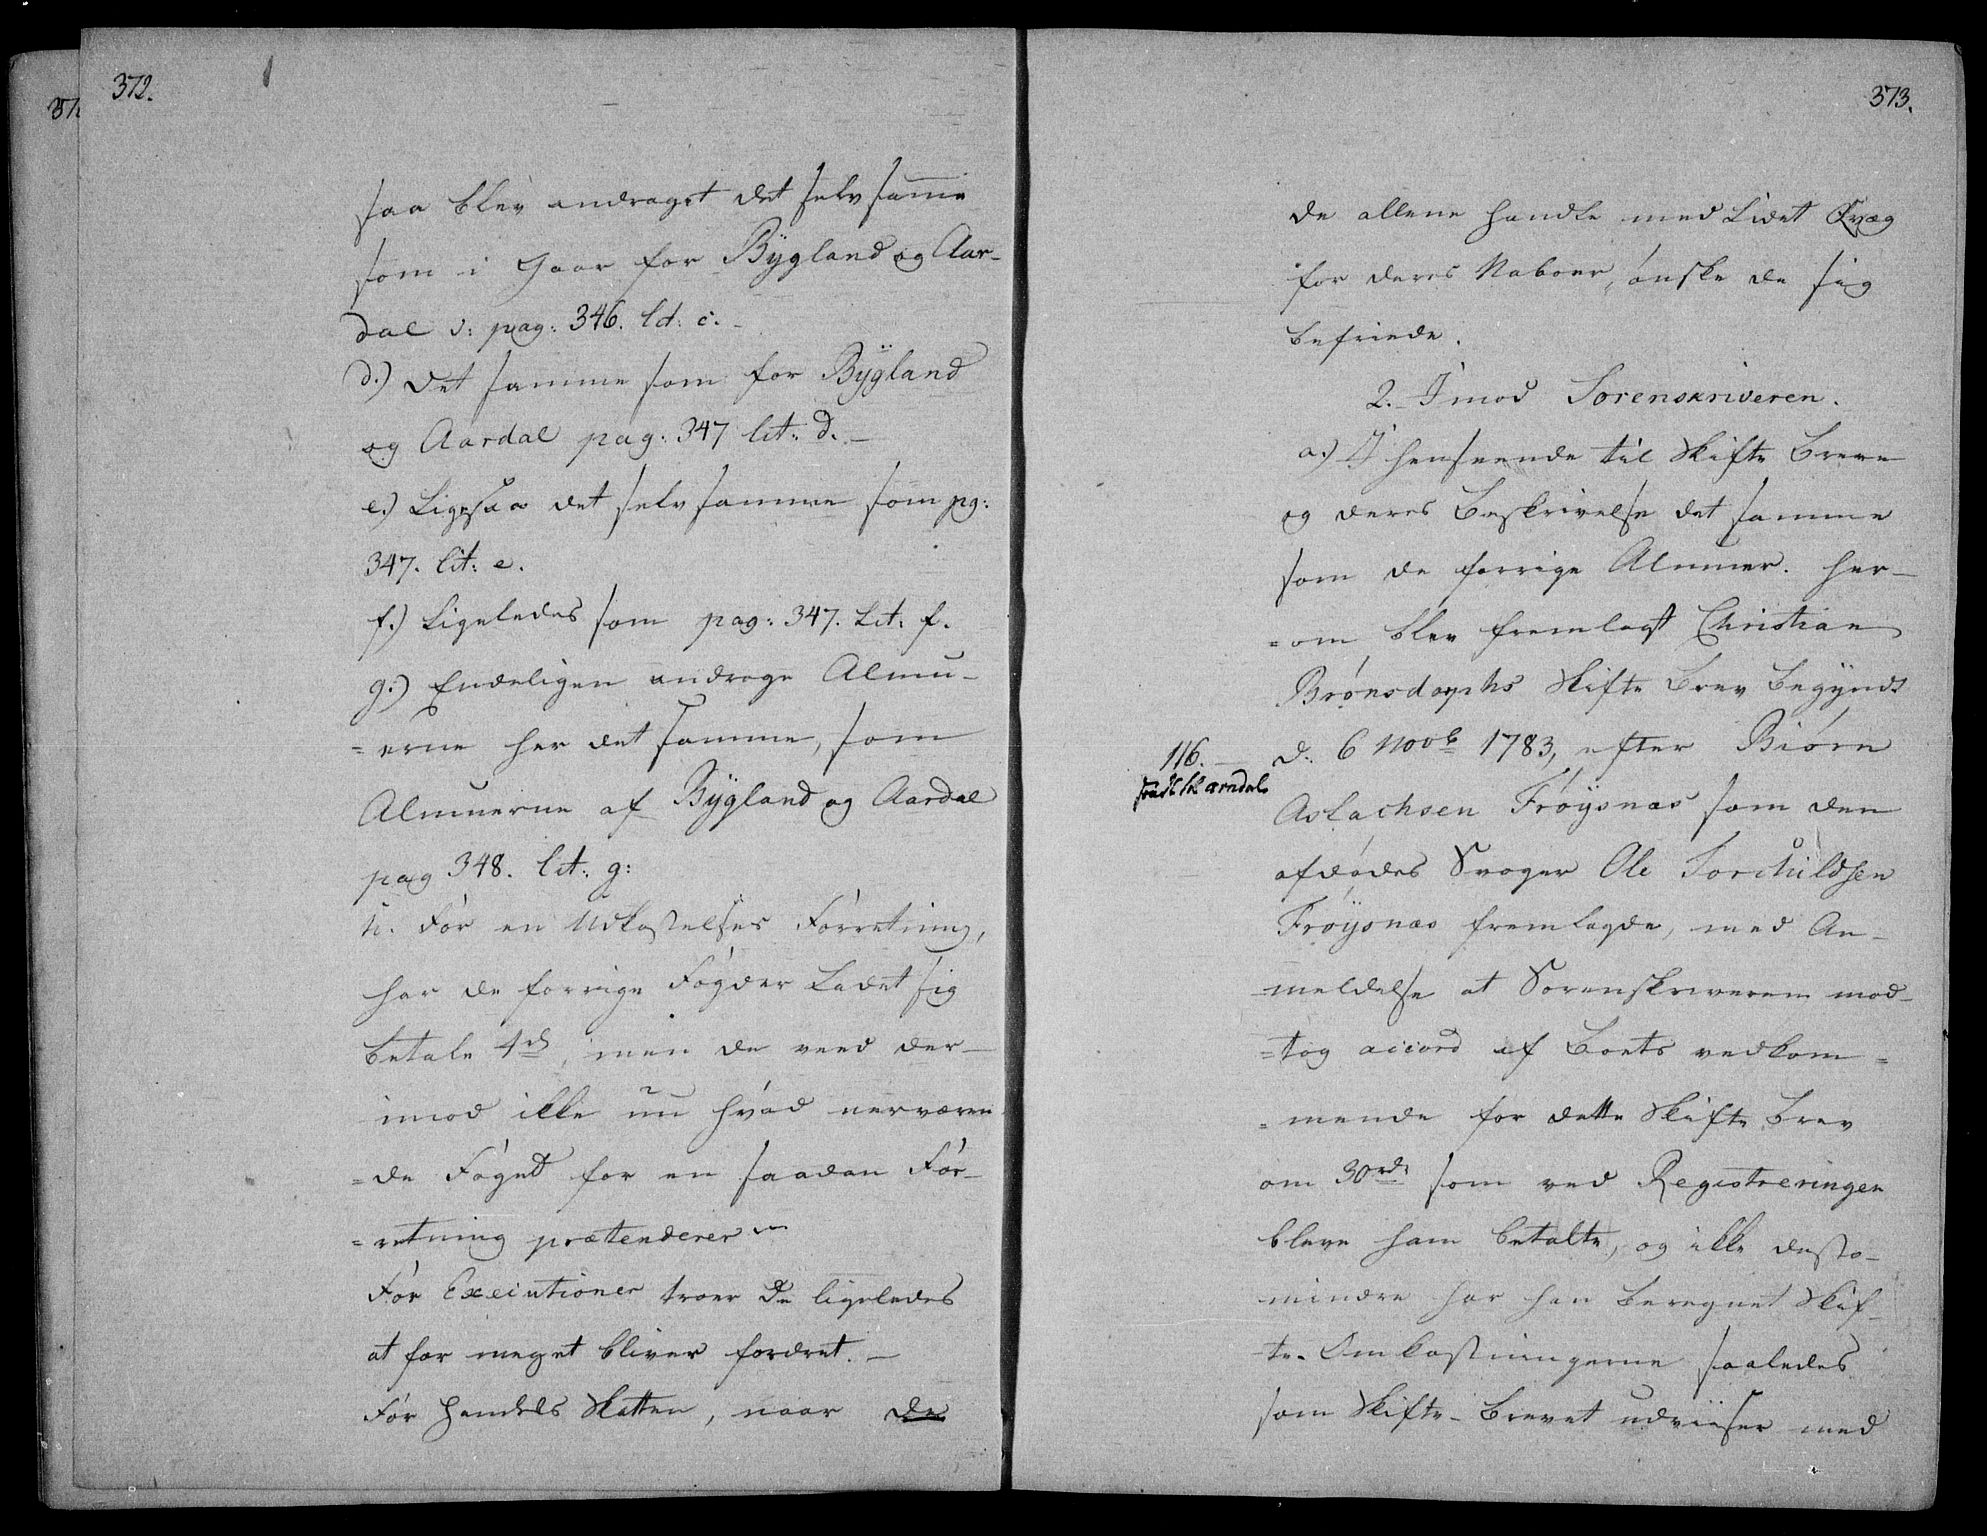 372.
saa blev andraget det selv samme
som i Gaar for Bÿgland og Aar-
dal v: pag: 346. ld: c. -
d.) Det samme som for Bÿgland
og Aardal pag: 347 lit: d. -
e.) Ligesaa det selv samme som pg:
347. lit: e.
f.) Ligeledes som pag: 347. Lit. f.
g.) Endeligen androge Almu-
= erne her det samme, som
Almuerne af Bÿgland og Aardal
pag 348. lit: g:
h. For en Udkastelses Forretning,
har de forrige Fogder Ladet sig
betale 4 rd, men de veed der-
imod ikke nu hvad nerværen
= de Foged for en saadan For-
= retning prætenderer
For Executioner troer De ligeledes
at for meget bliver fordret. -
For Handels Skatten, naar de
373.
de allene handle med Lidet Qvæg
for deres Naboer, ønske de sig
befriede.
2. Imod Sorenskriveren.
a.) I henseende til Skifte Breve
og deres Beskrivelse det samme
som de forrige Almuer. her-
= om blev fremlagt Christian
Brønsdorphs Skifte Brev Begÿndt
116. -
d: 6 Novb 1783, efter Biørn
Aslachsen Frøÿsnæs som den
afdødes Svoger Ole Torchildsen
Frøÿsnæs fremlagde, med An-
-meldelse at Sorenskriveren mod-
= tog accord af Boets vedkom =
= mende for dette Skifte Brev
om 30 rd som ved Registreringen
bleve ham betalte, og ikke desto-
mindre har han beregnet Skif-
te-Omkostningerne saaledes
som Skifte-Brevet udviiser med